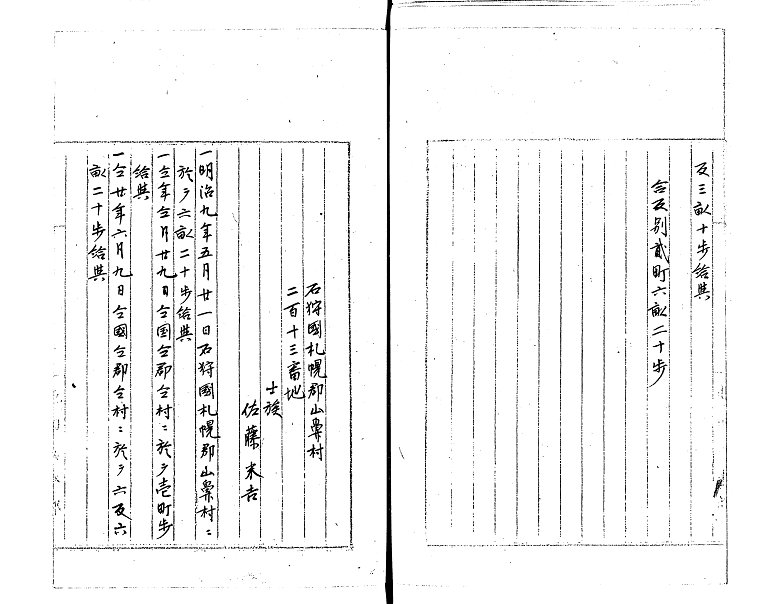 反三畝十歩給與
合反別貳町六畝二十歩
石狩國札幌郡山鼻村
二百十三番地
士族
佐藤末吉
一明治九年五月廿一日石狩國札幌郡山鼻村ニ
於テ六畝二十歩給與
一仝年仝月廿九日仝国仝郡仝村ニ於テ壱町歩
給與
一仝廿年六月九日仝國仝郡仝村ニ於テ六反六
畝二十歩給與